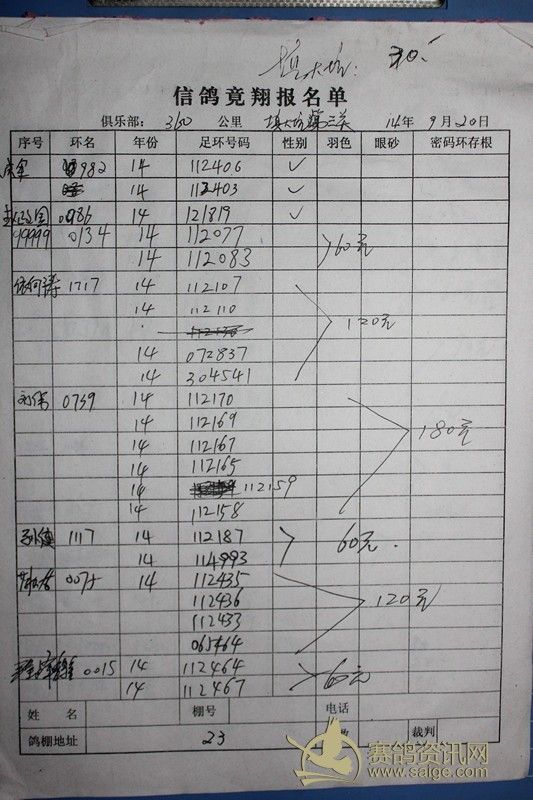 30.
信鸽竟翔报名单
俱乐部： 360 公里 第三关 14年 9月20日
序号 环名 年份 足环号码 性别 羽色 眼砂 密码环存根
982 14 112406 ✓
14 112403 ✓
0986 14 121819 ✓
99999 0134 14 112077
14 112083 60元
1717 14 112107
14 112110
120元
14 072837
14 304541
刘伟 0739 14 112170
14 112169
14 112167 180元
14 112165
14 112159
14 112158
1117 14 112187 60元.
14 114993
0075 14 112435
112436 120元
112433
065464
0015 14 112464 60元
14 112467
姓名 棚号 电话
鸽棚地址 23 裁判
赛鸽资讯网
www.saige.com